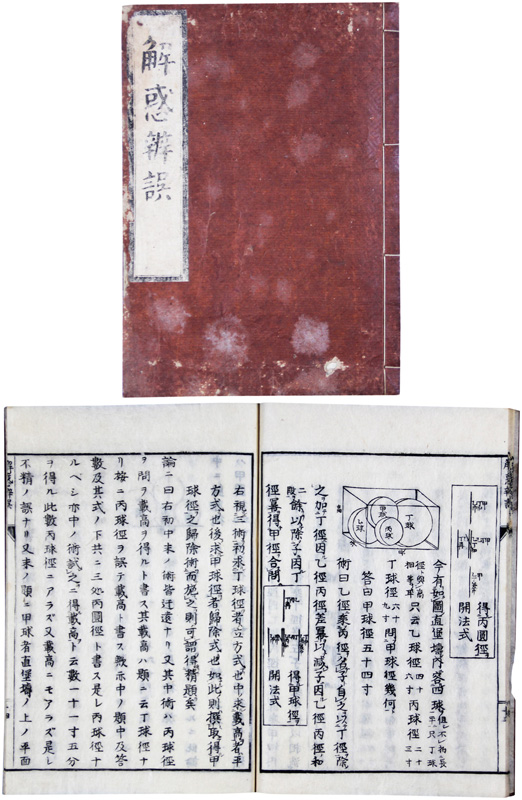 解惑辨誤
得丙圓徑
開法式
今有如圖直堡壔内容四球
只云乙球徑四十六寸丙球徑二十三寸
丁球徑六十九寸問甲球徑幾何
答曰甲球徑五十四寸
術曰乙徑乘丙徑名子自之以丁徑除
之加丁徑因乙徑丙徑差冪以減子因乙徑丙徑和
二段餘以除子因丁
徑冪得甲徑合問
甲球
乙球
丙球
丁球
得甲球徑
開法式
右視三術初求丁球徑者立方式也中求載高者平
方式也後求甲球徑者歸除式也如此則撰取得甲
球徑之歸除術而施之則可謂得精題矣
論ニ曰右初中末ノ術皆迂遠ナリ又其中術ハ丙球徑
ヲ問ヲ載高ヲ得ルト書ス其載高ハ題ニ云丁球徑ナ
リ按ニ丙球徑ヲ誤テ載高ト書ス歟亦中ノ題中及答
數及其式ノ下共ニ三処丙圓徑ト書ス是レ丙球徑ナ
ルベシ亦中ノ術試之ニ得載高ト云數一十一寸五分
ヲ得ル此數丙球徑ニアラズ又載高ニモアラズ是レ
不精ノ誤ナリ又末ノ題ニ甲球者直堡壔ノ上ノ平面